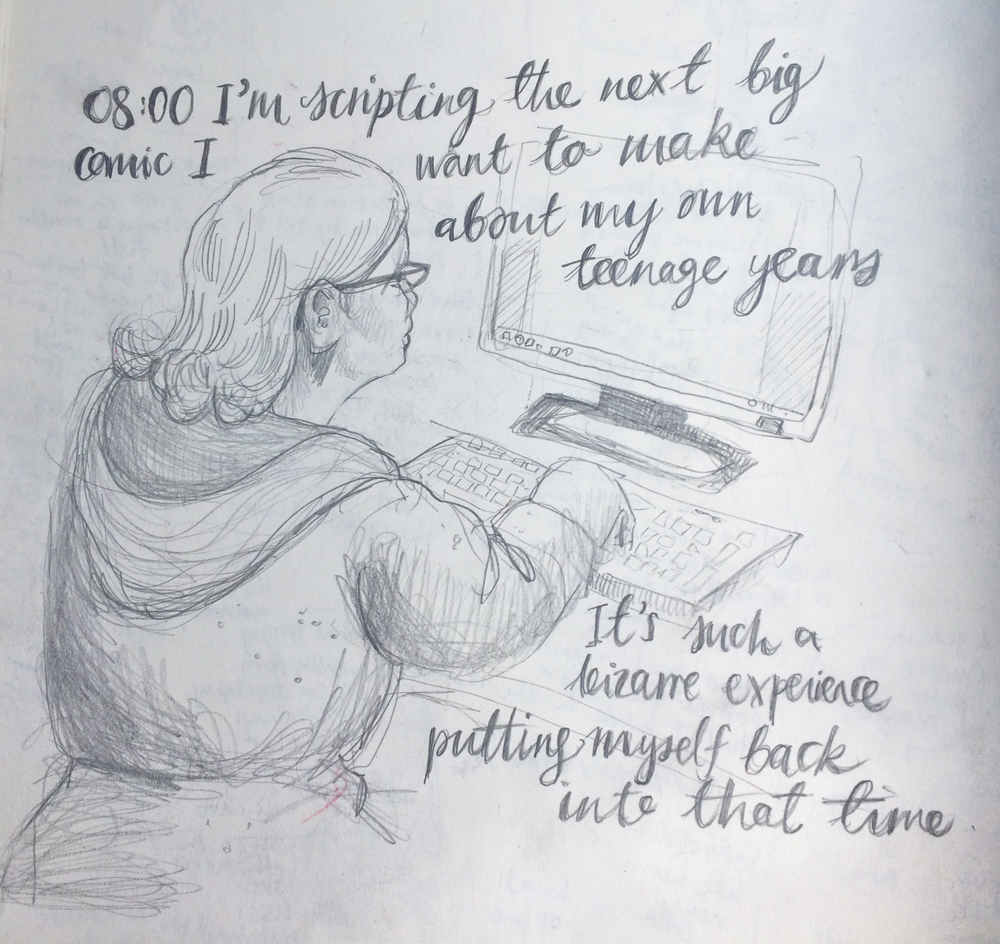 08:00 I'm scripting the next big
comic I want to make
about my own
teenage years
It's such a
bizarre experience
putting myself back
into that time